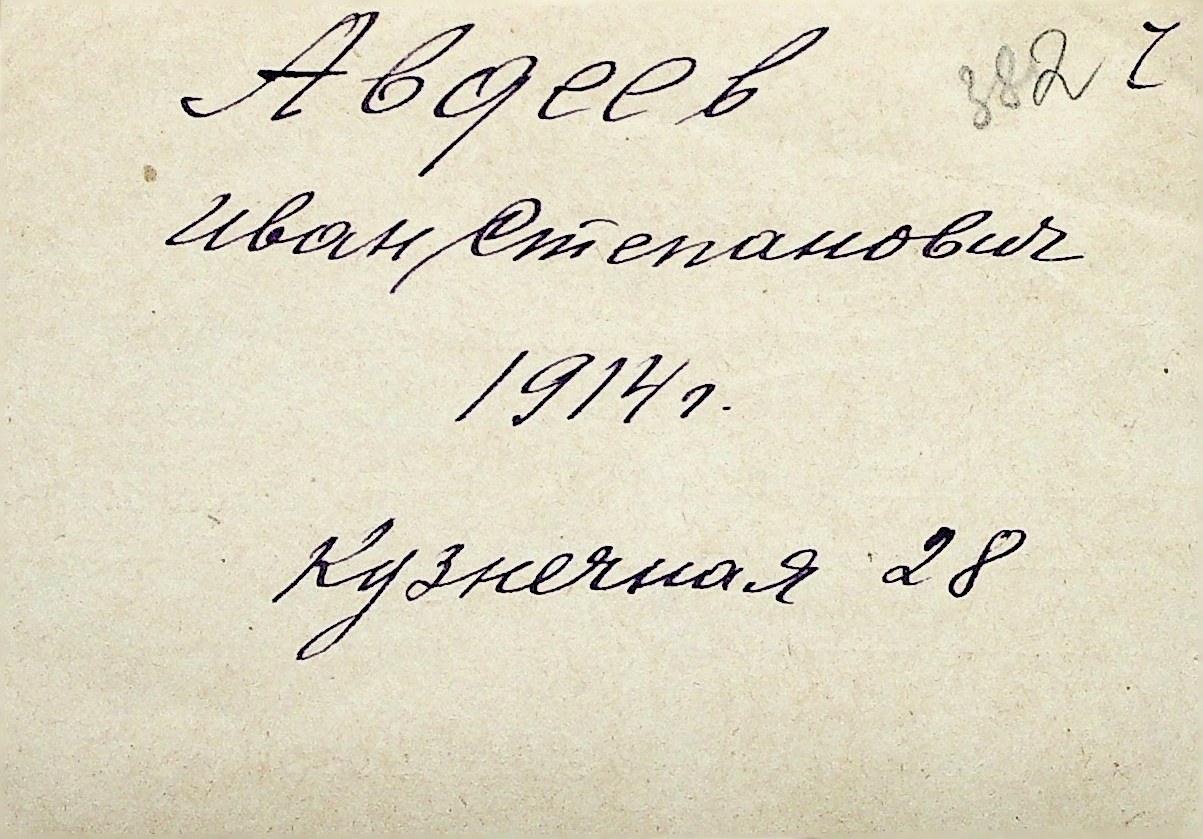 Авдеев 382
Иван Степанович
1914 г.
Кузнечная 28